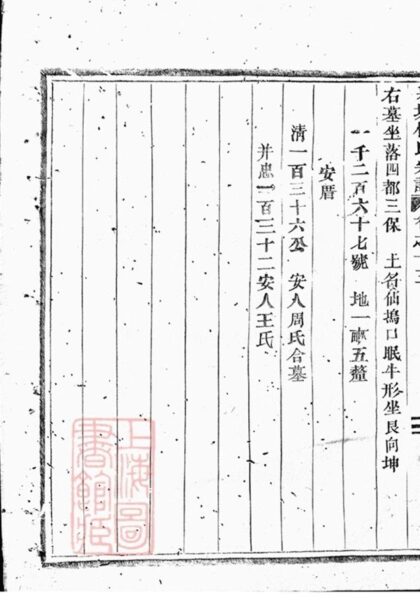 右墓坐落四都三保　土名仙塢口眠牛形坐艮向坤
一千二百六十七號　地一畝五釐
安厝
清一百三十六公　安人周氏合墓
并忠一百三十二安人王氏
上海圖書館藏